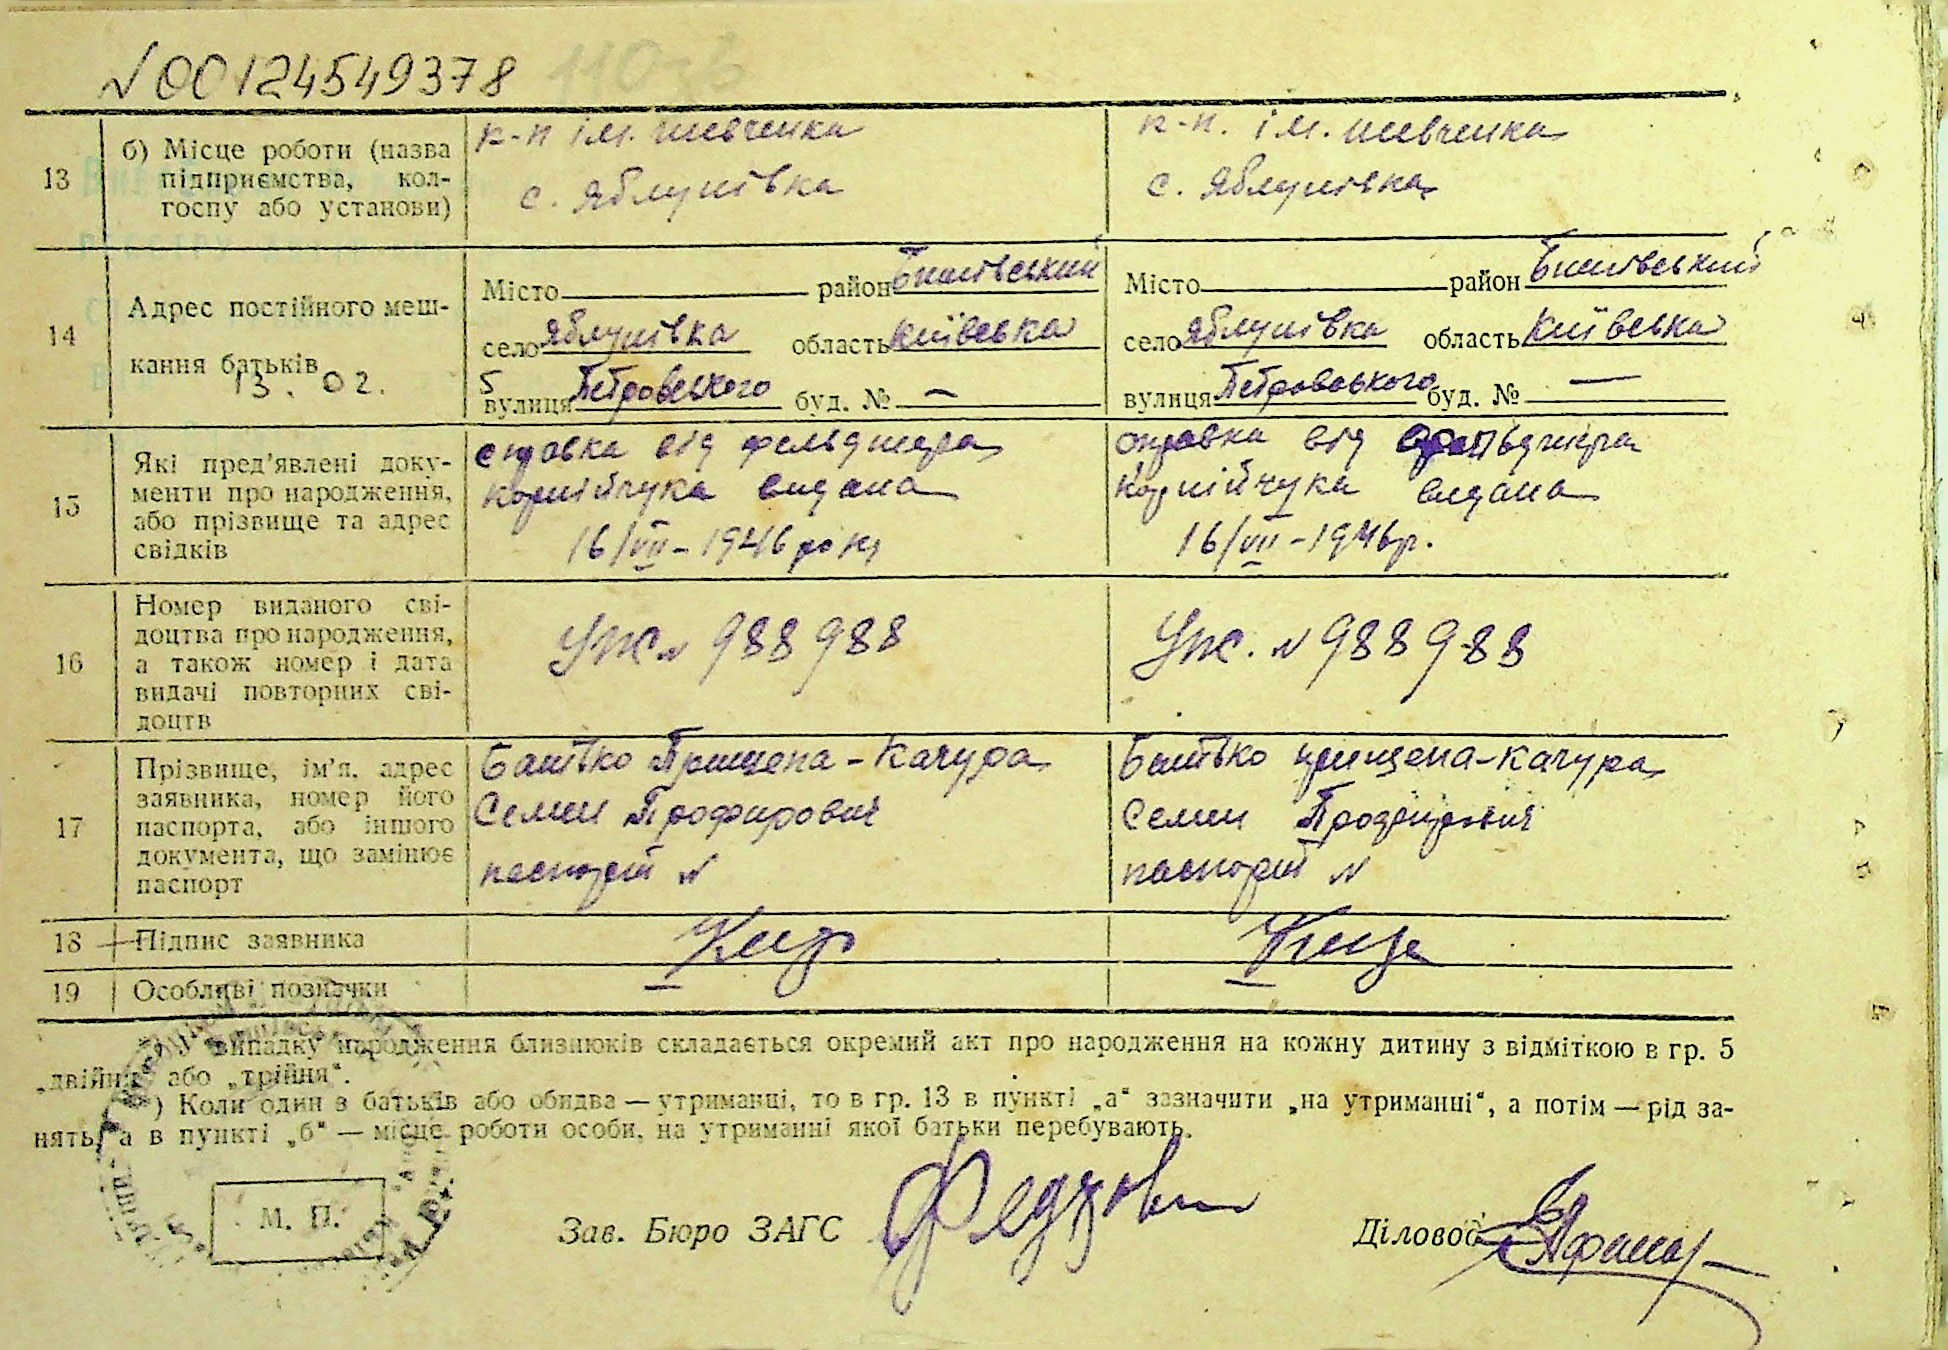 №00124549378
13
б) Місце роботи (назва
підприємства, кол-
госпу або установи)
к-п ім. Шевченка
с. Яблунівка
к-п. ім. Шевченка
с. Яблунівка
14
Адрес постійного меш-
кання батьків
13.02.
Місто район Бишівський
село Яблунівка область Київська
вулиця Петровського буд. № —
Місто район Бишівський
село Яблунівка область Київська
вулиця Петровського буд. № —
15
Які пред'явлені доку-
менти про народження,
або прізвище та адрес
свідків
справка від фельдшера
Корнійчука видана
16/VII-1946 року
справка від фельдшера
Корнійчука видана
16/VII-1946р.
16
Номер виданого сві-
доцтва про народження,
а також номер і дата
видачі повторних сві-
доцтв
УЖ № 988988
УЖ. № 988988
17
Прізвище, ім'я, адрес
заявника, номер його
паспорта, або іншого
документа, що замінює
паспорт
Батько Прищепа-Качура
Семен Профирович
паспорт №
Батько Прищепа-Качура
Семен
паспорт №
18
Підпис заявника
19
Особливі позначки
випадку народження близнюків складається окремий акт про народження на кожну дитину з відміткою в гр. 5
„двійня" або „трійня".
) Коли один з батьків або обидва — утриманці, то в гр. 13 в пункті „а" зазначити „на утриманні", а потім — рід за-
нять, а в пункті „б" — місце роботи особи, на утриманні якої батьки перебувають.
М. П.
Зав. Бюро ЗАГС
Діловод